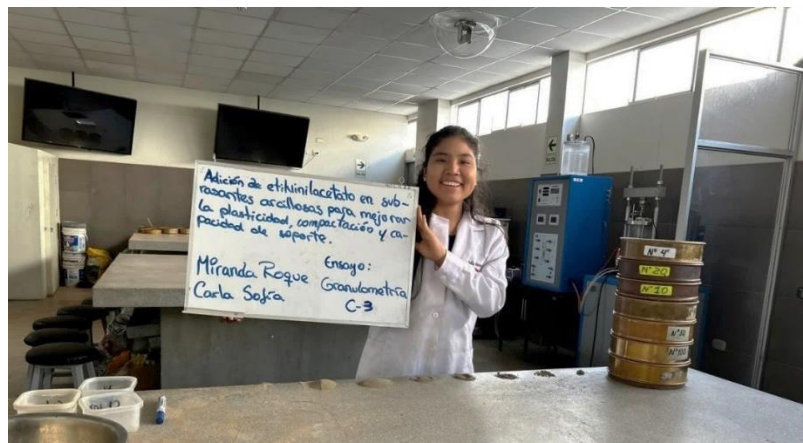 Adición de etilvinilacetato en sub-
rasantes arcillosas para mejorar
la plasticidad, compactación y ca-
pacidad de soporte.
Miranda Roque
Carla Sofía
Ensayo:
Granulometría
C-3
N° 4
N° 20
N° 10